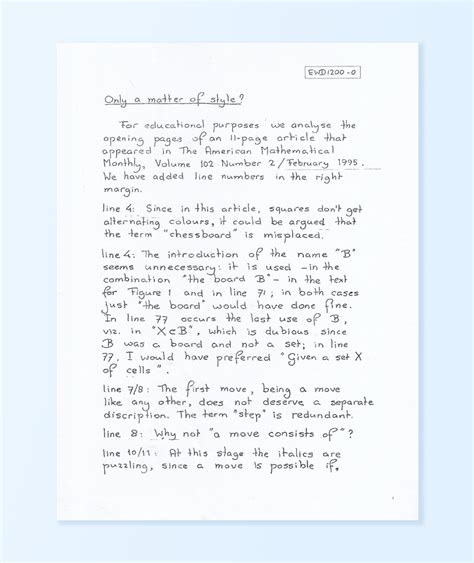 EWD1200-0
Only a matter of style?
For educational purposes we analyse the
opening pages of an 11-page article that
appeared in The American Mathematical
Monthly, Volume 102 Number 2 / February 1995.
We have added line numbers in the right
margin.
line 4: Since in this article, squares don't get
alternating colours, it could be argued that
the term "chessboard" is misplaced.
line 4: The introduction of the name "B"
seems unnecessary: it is used -in the
combination "the board B"- in the text
for Figure 1 and in line 71; in both cases
just "the board" would have done fine.
In line 77 occurs the last use of B,
viz. in "X⊂B", which is dubious since
B was a board and not a set; in line
77, I would have preferred "Given a set X
of cells".
line 7/8: The first move, being a move
like any other, does not deserve a separate
discription. The term "step" is redundant.
line 8: Why not "a move consists of"?
line 10/11: At this stage the italics are
puzzling, since a move is possible if,